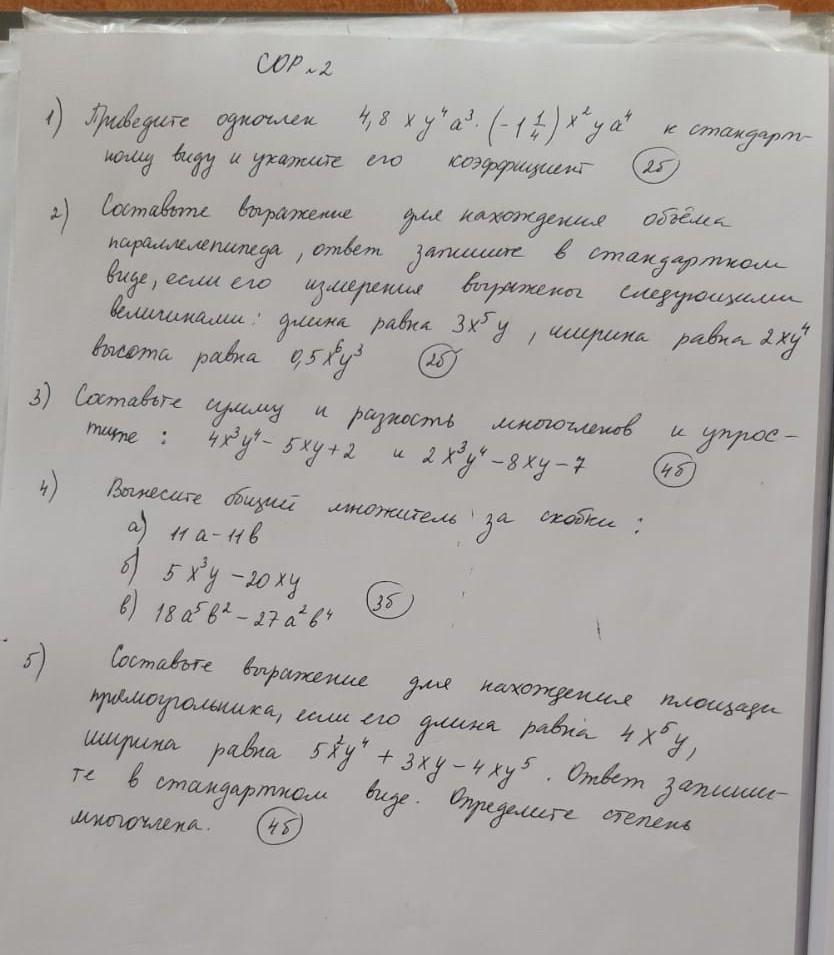 СОР №2
1) Приведите одночлен 4,8 xy⁴a³·(-1 1/4) x²ya⁴ к стандарт-
ному виду и укажите его коэффициент (2б)
2) Составьте выражение для нахождения объёма
параллелепипеда, ответ запишите в стандартном
виде, если его измерения выражены следующими
величинами: длина равна 3x⁵y, ширина равна 2xy⁴
высота равна 0,5x⁶y³ (2б)
3) Составьте сумму и разность многочленов и упрос-
тите: 4x³y⁴ - 5xy + 2 и 2x³y⁴ - 8xy - 7 (4б)
4) Вынесите общий множитель за скобки:
а) 11a - 11b
б) 5x³y - 20xy
в) 18a⁵b² - 27a²b⁴ (3б)
5) Составьте выражение для нахождения площади
прямоугольника, если его длина равна 4x⁵y,
ширина равна 5x²y⁴ + 3xy - 4xy⁵. Ответ запиши-
те в стандартном виде. Определите степень
многочлена. (4б)